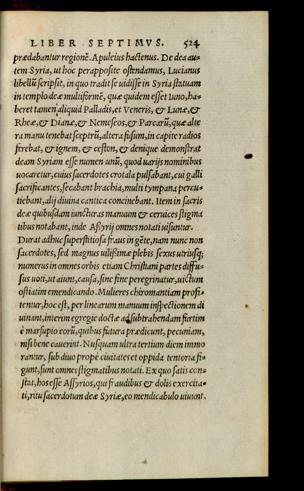 LIBER SEPTIMVS. 524
prædabantur regionē. Apuleius hactenus. De dea au-
tem Syria, ut hoc perapposite ostendamus, Lucianus
libellū scripsit, in quo tradit se uidisse in Syria statuam
in templo deæ multiformē, quæ quidem esset Iuno, ha-
beret tamen aliquid Palladis, et Veneris, & Lunæ, &
Rheæ, & Dianæ, & Nemeseos, & Parcarū, quæ alte
ra manu tenebat sceptrū, altera fusum, in capite radios
ferebat, & ignem, & ceston, & denique demonstrat
deam Syriam esse numen unū, quod uarijs nominibus
uocaretur, cuius sacerdotes crotala pulsabant, cui galli
sacrificantes, secabant brachia, multi tympana percu-
tiebant, alij diuina cantica concinebant. Item in sacris
deæ quibusdam iuncturas manuum & ceruices stigma
tibus notabant, inde Assyrij omnes notati uisuntur.
Durat adhuc superstitiosa fraus in gēte, nam nunc non
sacerdotes, sed magnus uilissimæ plebis sexus utriusq;
numerus in omnes orbis etiam Christiani partes diffu-
sus uoti, ut aiunt, causa, sine fine peregrinatur, uictum
ostiatim emendicando. Mulieres chiromantiam profi-
tentur, hoc est, per linearum manuum inspectionem di
uinant, interim egregie doctæ ad subtrahendam furtim
è marsupio eorū, quibus futura prædicunt, pecuniam,
nisi bene cauerint. Nusquam ultra tertium diem immo
rantur, sub diuo propè ciuitates et oppida tentoria fi-
gunt, sunt omnes stigmatibus notati. Ex quo satis con-
stat, hos esse Assyrios, qui fraudibus & dolis exercita-
ti, ritu sacerdotum deæ Syriæ, eo mendicabulo uiuunt.